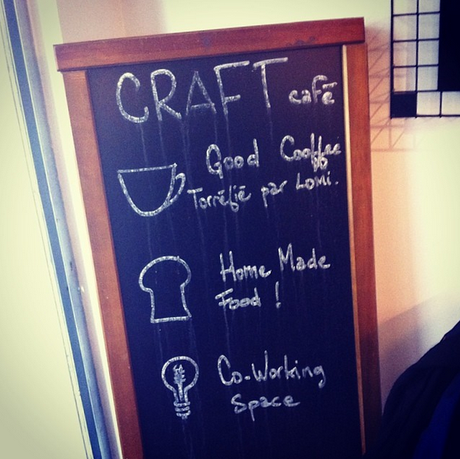 CRAFT café
Good Cooffee
Torréfié par Lomi.
Home Made
Food !
Co-Working
Space